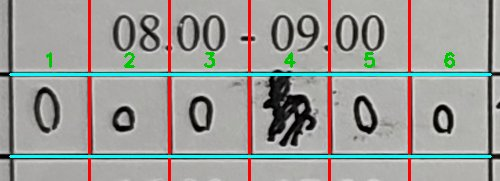 08.00 - 09.00
1 2 3 4 5 6
0 0 0 0 0